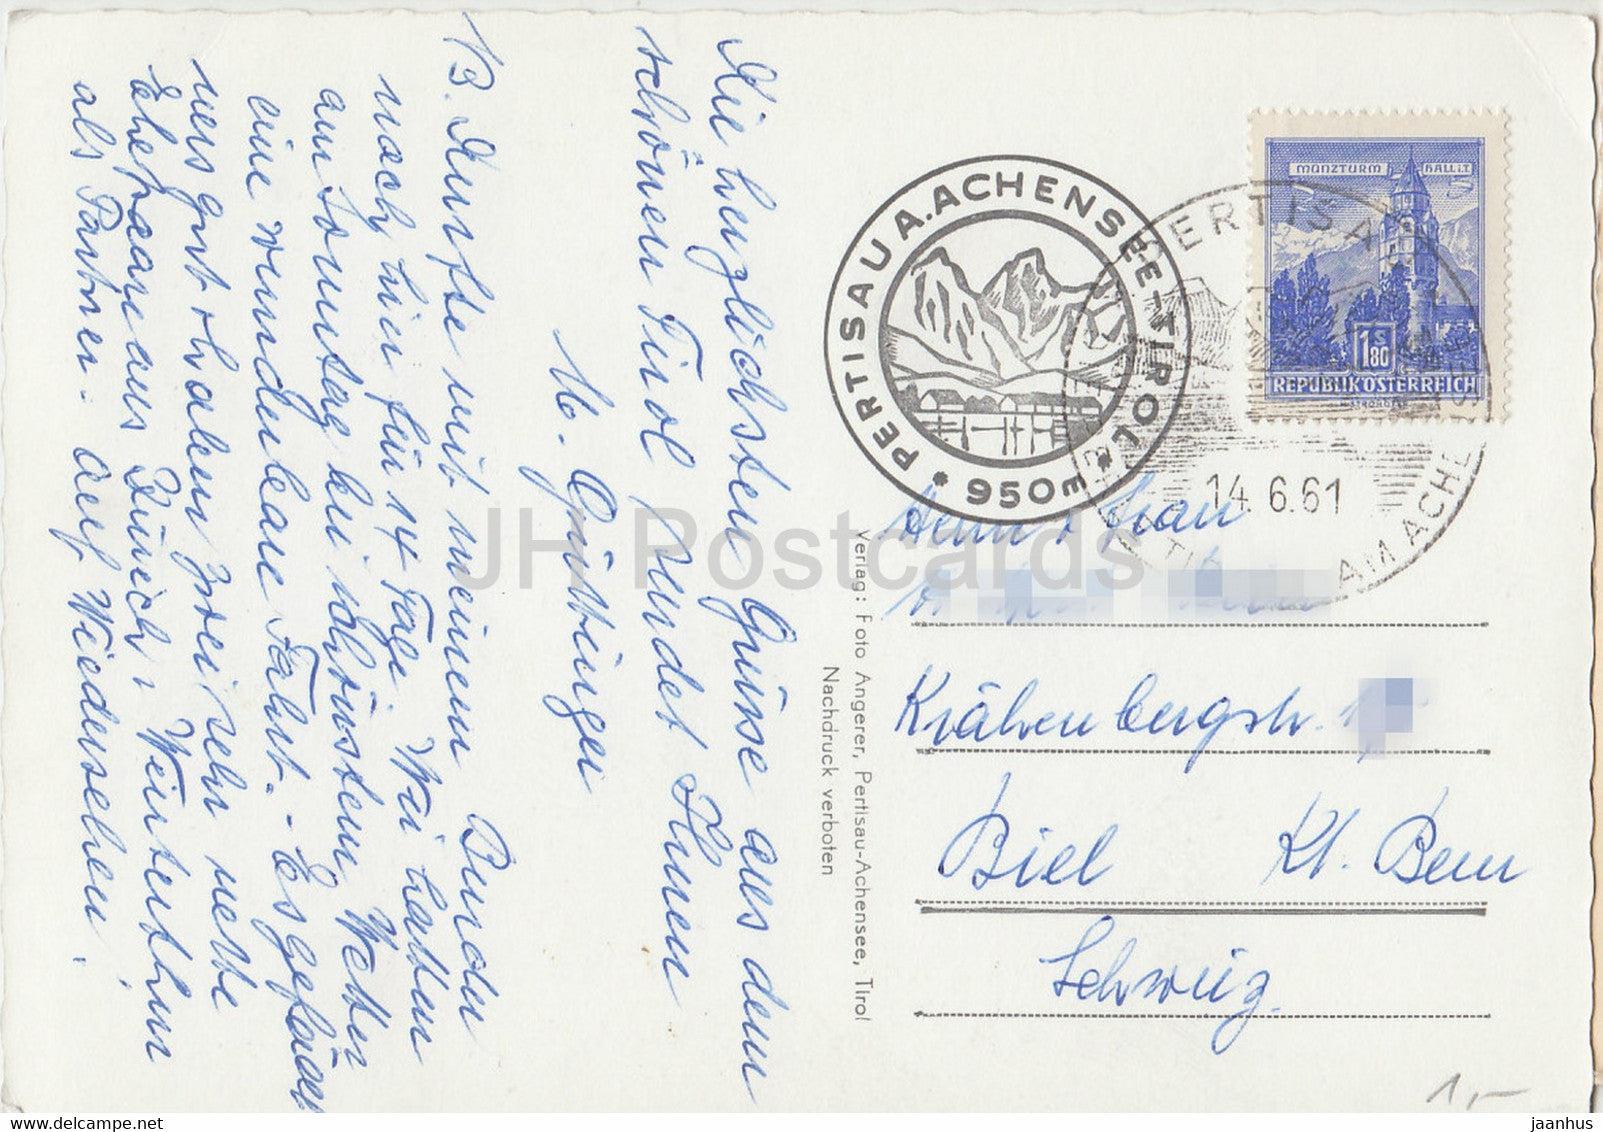 Die herzlichsten Grüsse aus dem
schönen Tirol sendet Ihnen
M. Güttinger
NB. Durfte mit meinem Bruder
noch hier für 14 Tage. Wir hatten
am Sonntag bei schönstem Wetter
eine wunderbare Fahrt. - Es gefällt
uns gut & haben zwei sehr nette
Ehepaare aus Zürich & Winterthur
als Partner. Auf Wiedersehen!
Verlag: Foto Angerer, Pertisau-Achensee, Tirol
Nachdruck verboten
PERTISAU A. ACHENSEE-TIROL
* 950m *
PERTISAU
AM ACHENSEE
14.6.61
MÜNZTURM HALL i.T.
S
1.80
REPUBLIK ÖSTERREICH
Herrn & Frau
Krähenbergstr.
Biel Kt. Bern
Schweiz.
1,-
JH Postcards
HipPostcard.com
jaanhus